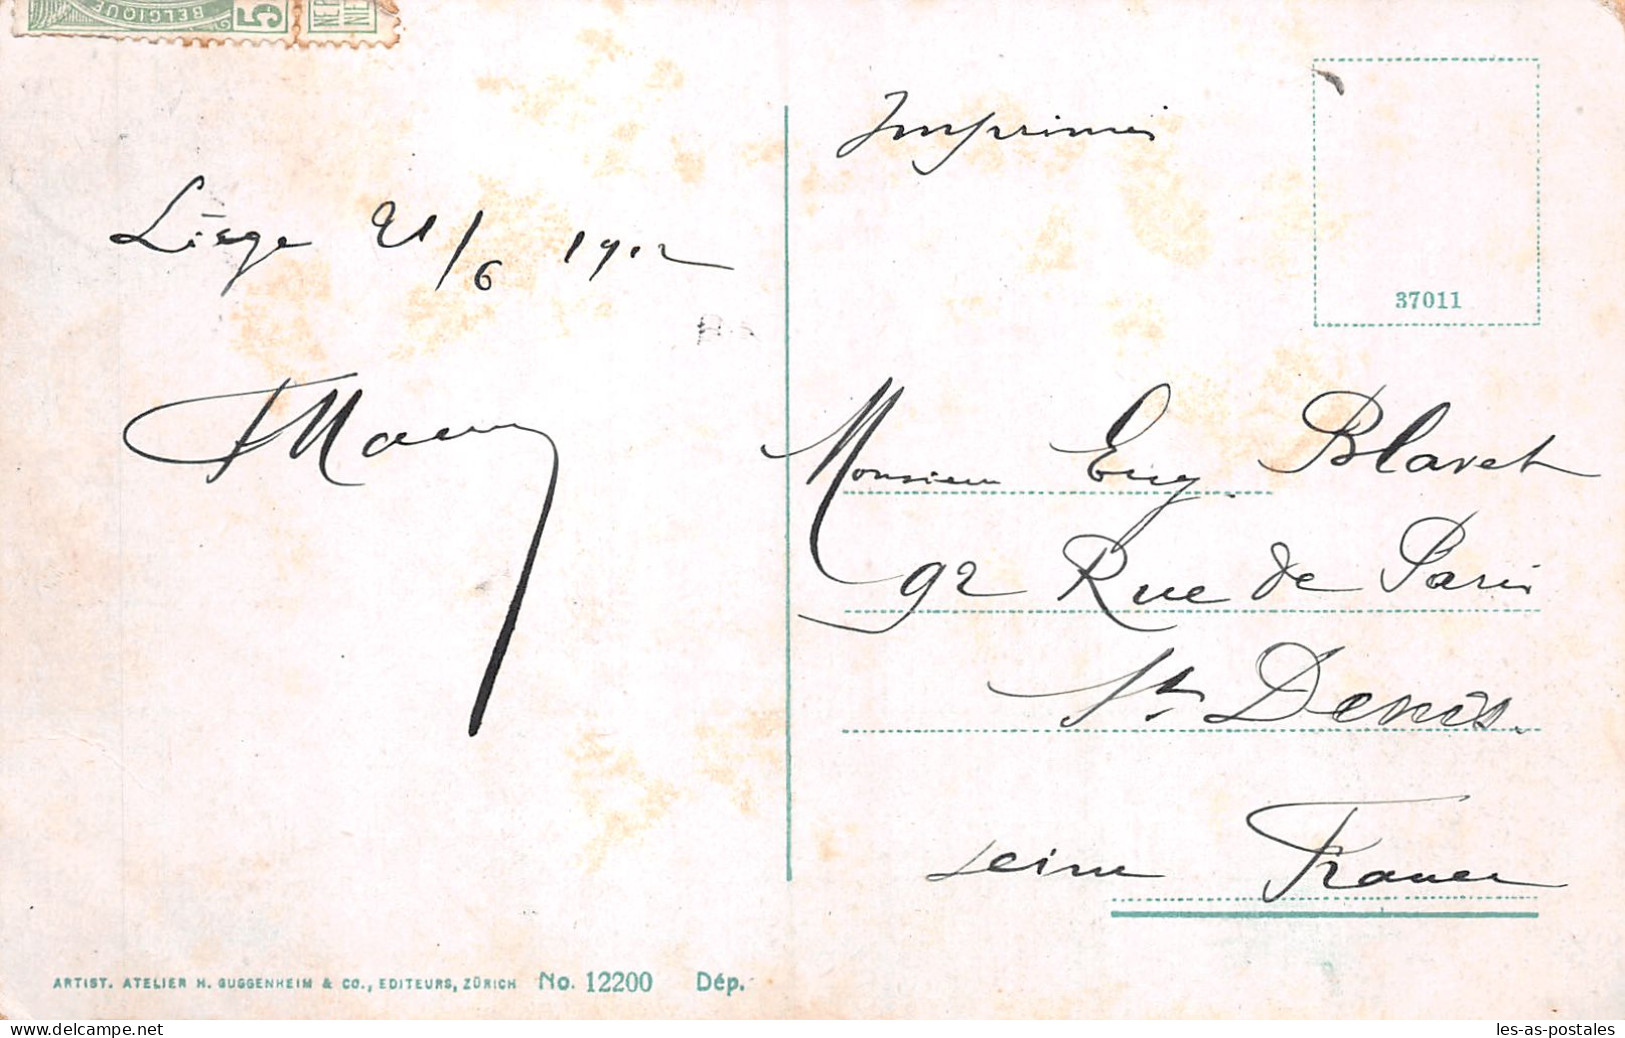 BELGIQUE 5
Imprimés
Liége 21/6 1912
37011
Monsieur Eug. Blavet
92 Rue de Paris
St. Denis.
Seine France
ARTIST. ATELIER H. GUGGENHEIM & CO., EDITEURS, ZÜRICH No. 12200 Dép.
delcampe.net
les-as-postales